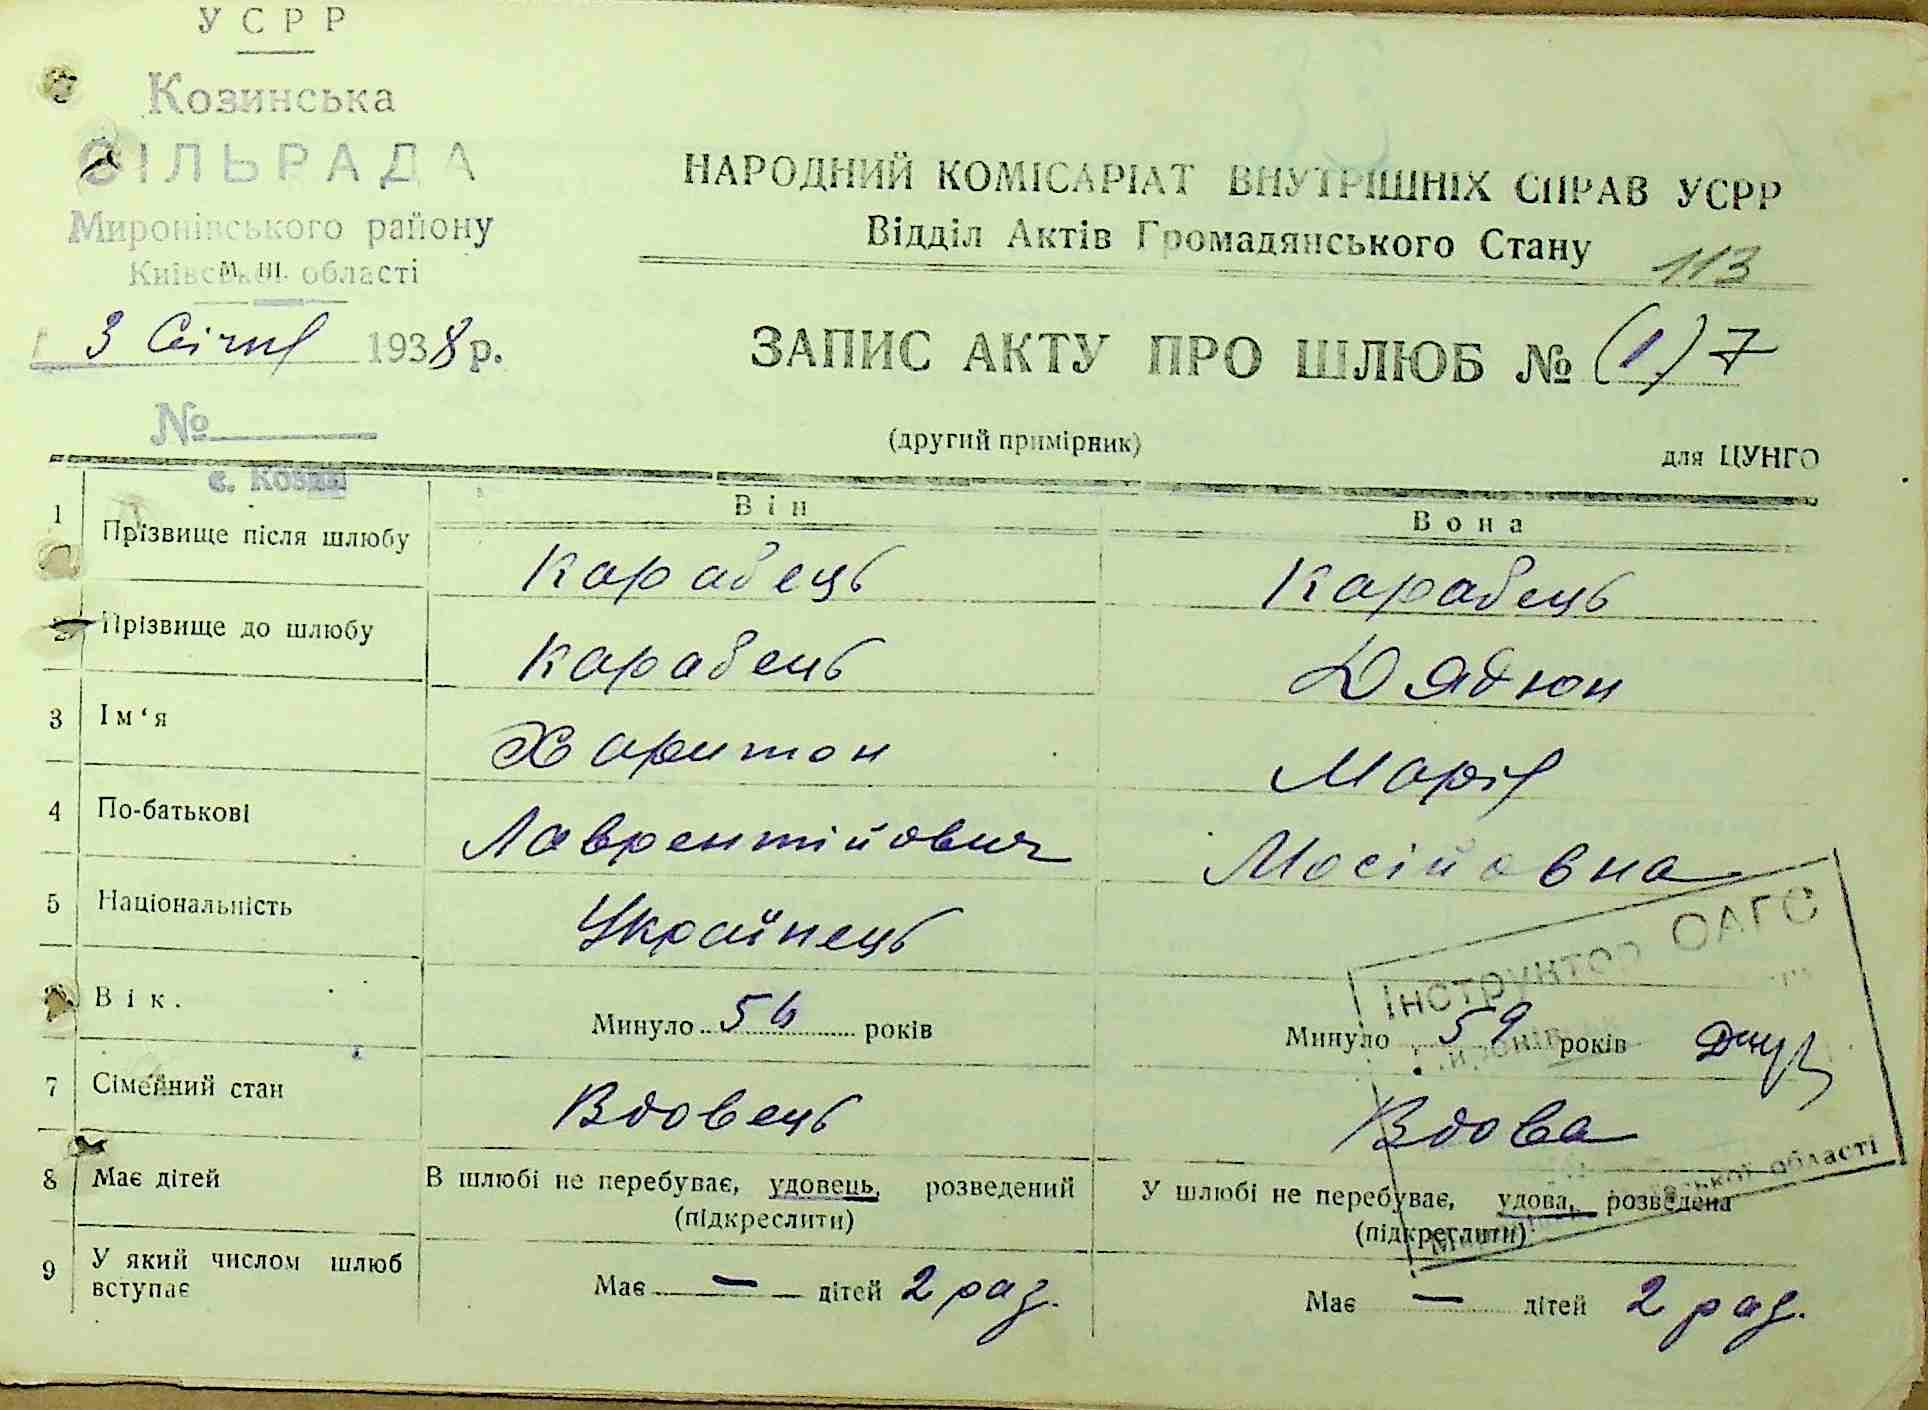 УСРР
Козинська
СІЛЬРАДА
Миронівського району
Київської області
3 Січня 1938 р.
№
с. Козин
НАРОДНИЙ КОМІСАРІАТ ВНУТРІШНІХ СПРАВ УСРР
Відділ Актів Громадянського Стану
113
ЗАПИС АКТУ ПРО ШЛЮБ № (1) 7
(другий примірник)
для ЦУНГО
Він
Вона
1 Прізвище після шлюбу Карабець Карабець
2 Прізвище до шлюбу Карабець Дядюн
3 Ім‘я Харитон Марія
4 По-батькові Лаврентійович Мосійовна
5 Національність Українець
Вік. Минуло 56 років Минуло 59 років
7 Сімейний стан Вдовець Вдова
8 Має дітей В шлюбі не перебуває, удовець, розведений У шлюбі не перебуває, удова, розведена
(підкреслити) (підкреслити)
9 У який числом шлюб вступає Має — дітей 2 раз. Має — дітей 2 раз.
Інструктор ОАГС
області